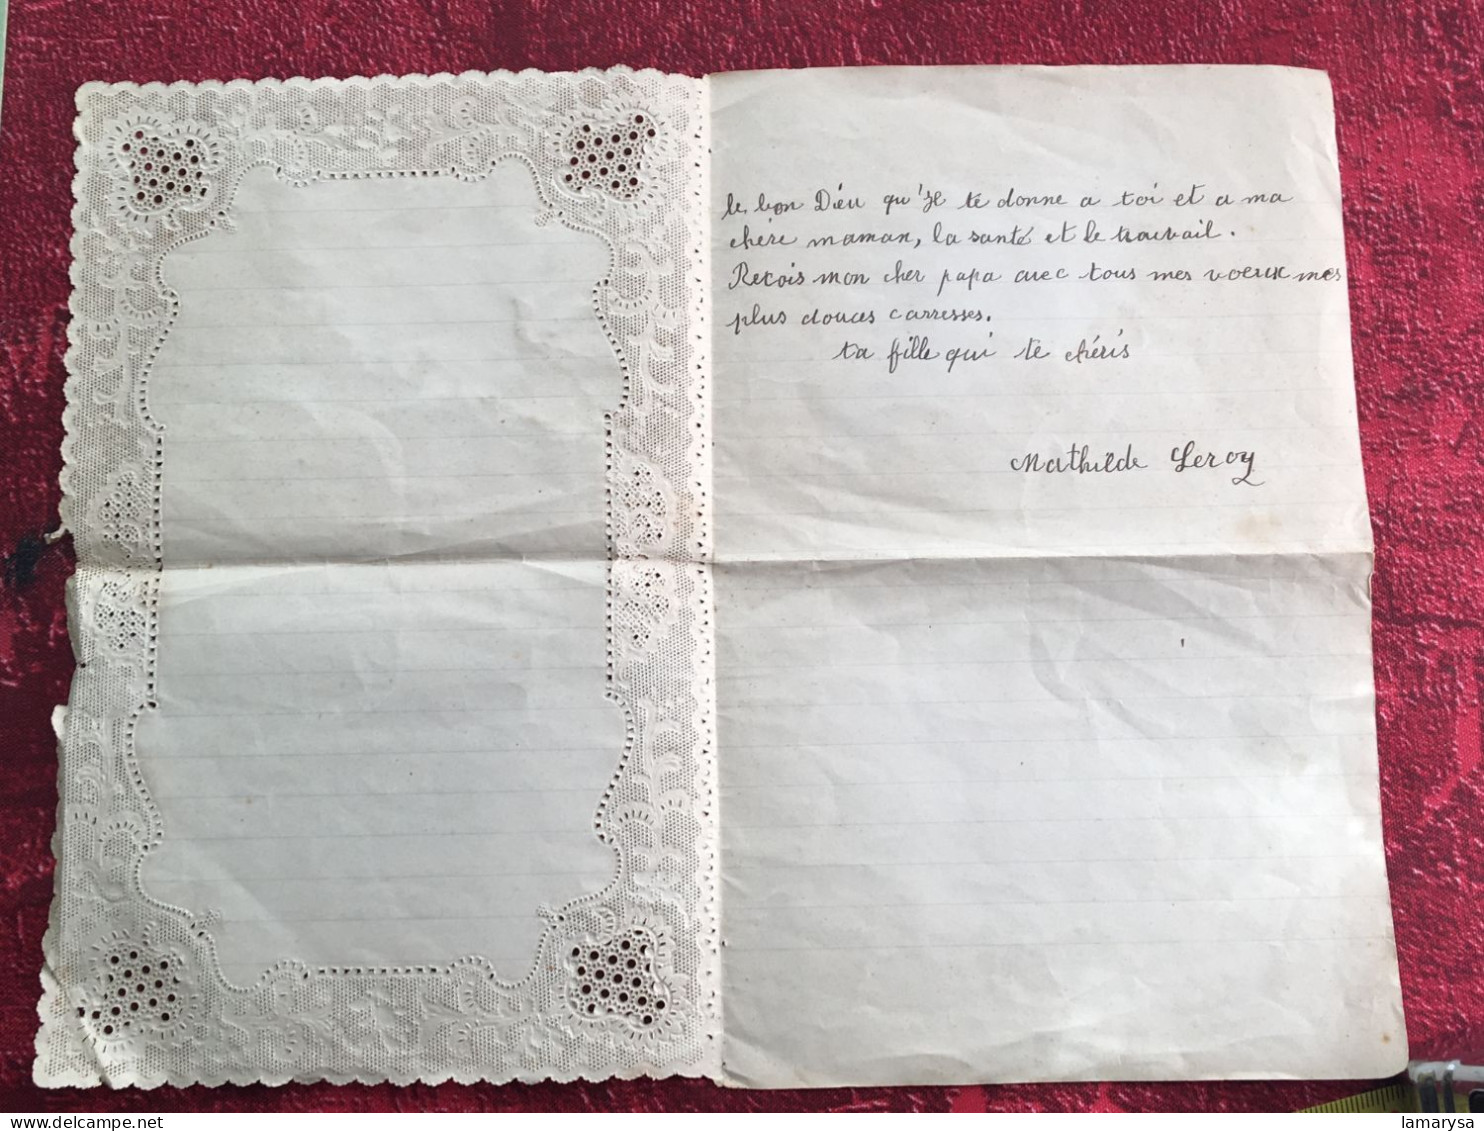 le bon Dieu qu'je te donne a toi et a ma
chere maman, la santé et le travail.
Recois mon cher papa avec tous mes voeux mes
plus douces carresses.
ta fille qui te chéris
Mathilde Leroy
lamarysa